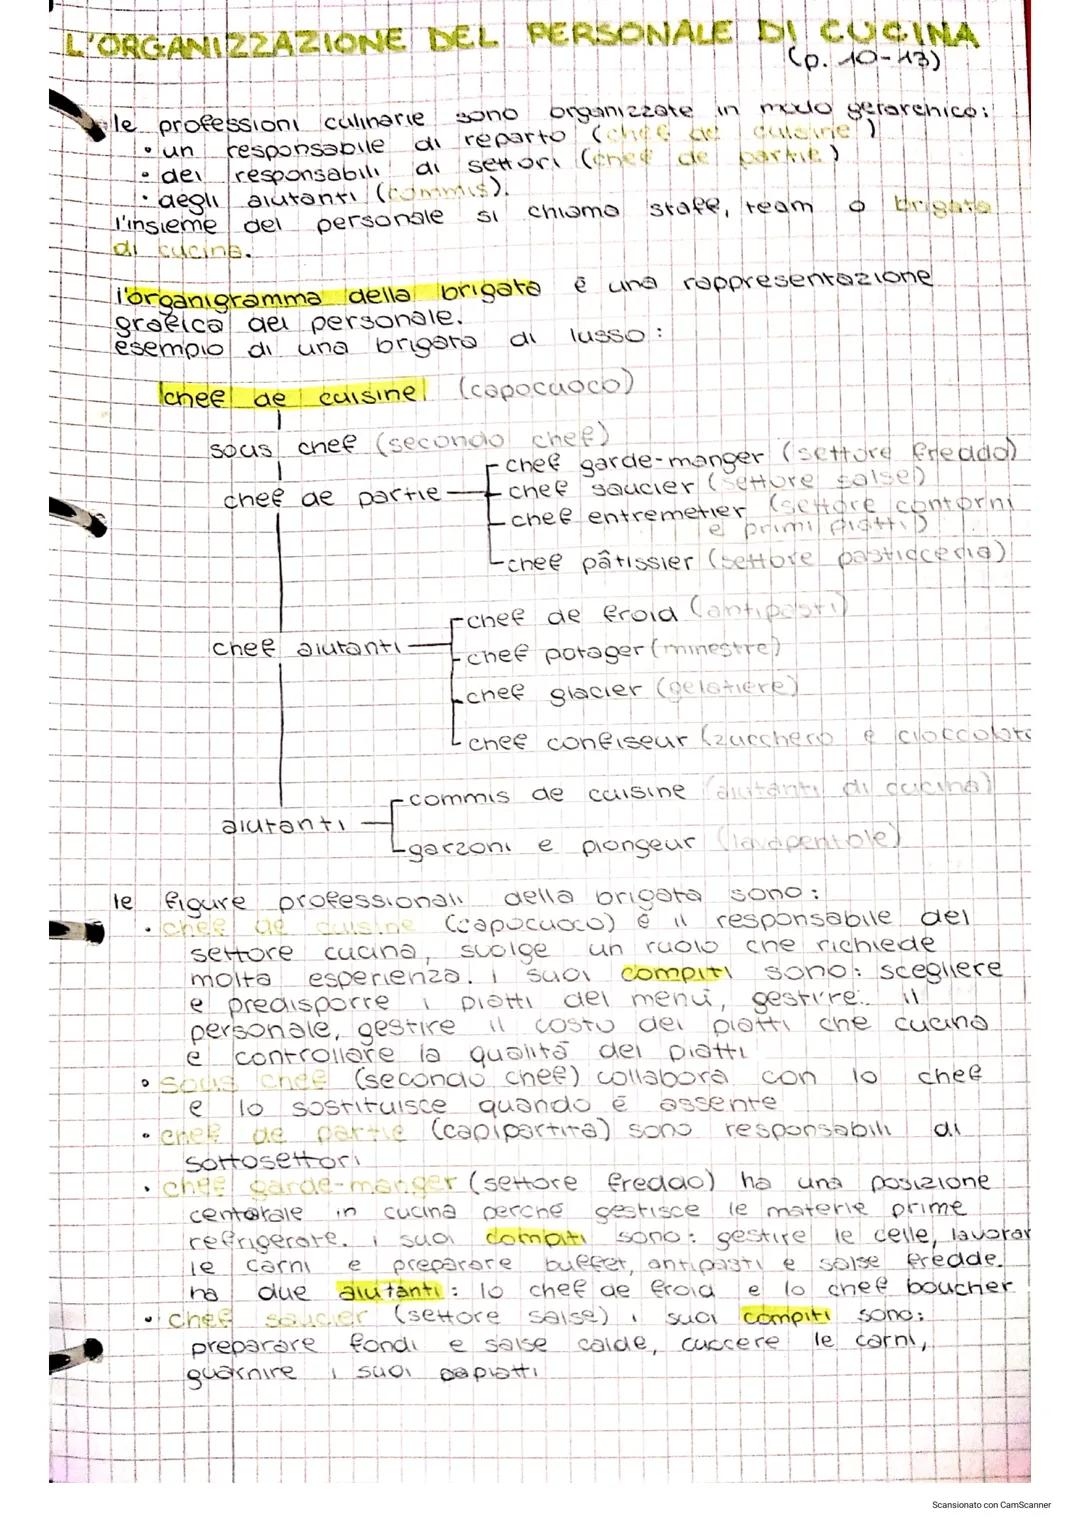 L'ORGANIZZAZIONE DEL PERSONALE DI CUCINA
(p. 10-13)
le professioni culinarie sono organizzate in modo gerarchico:
• un responsabile di reparto (chef de cuisine)
• dei responsabili di settori (chef de partie)
• degli aiutanti (commis).
l'insieme del personale si chiama staff, team o brigata
di cucina.
l'organigramma della brigata è una rappresentazione
grafica del personale.
esempio di una brigata di lusso:
chef de cuisine (capocuoco)
sous chef (secondo chef)
chef de partie
chef garde-manger (settore freddo)
chef saucier (settore salse)
chef entremetier (settore contorni
e primi piatti)
chef pâtissier (settore pasticceria)
chef aiutanti
chef de froid (antipasti)
chef potager (minestre)
chef glacier (gelatiere)
chef confiseur (zucchero e cioccolato
aiutanti
commis de cuisine (aiutanti di cucina)
garzoni e plongeur (lavapentole)
le figure professionali della brigata sono:
• chef de cuisine (capocuoco) è il responsabile del
settore cucina, svolge un ruolo che richiede
molta esperienza. i suoi compiti sono: scegliere
e predisporre i piatti del menù, gestire: il
personale, gestire il costo dei piatti che cucina
e controllare la qualità dei piatti
• sous chef (secondo chef) collabora con lo chef
e lo sostituisce quando è assente
• chef de partie (capipartita) sono responsabili di
sottosettori
• chef garde-manger (settore freddo) ha una posizione
centarale in cucina perché gestisce le materie prime
refrigerate. i suoi compiti sono: gestire le celle, lavorar
le carni e preparare buffet, antipasti e salse fredde.
ha due aiutanti: lo chef de froid e lo chef boucher
• chef saucier (settore salse) i suoi compiti sono:
preparare fondi e salse calde, cuocere le carni,
guarnire i suoi papiatti
Scansionato con CamScanner